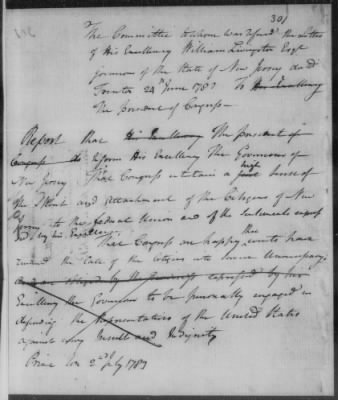 301
The Committee to whom was refered the Letter
of His Excellency William Livingston Esqr
governor of the State of New Jersey dated
Trenton 24th June 1783 To His Excellency
the president of Congress—
Report that His Excellency The president of
Congress do inform His Excellency The Governour of
New Jersey That Congress entertain a high sense of
the and attachment of the Citizens of New
Jersey to the federal Union and of the Sentiments
by his Excellency
That Congress are happy the events have
rendered the Call of the Citizens into Service Unnecessary
and as by the expressed by his
Excellency the Governour to be personally engaged in
defending the Representatives of the United States
against every Insult and Indignity
2nd July 1783